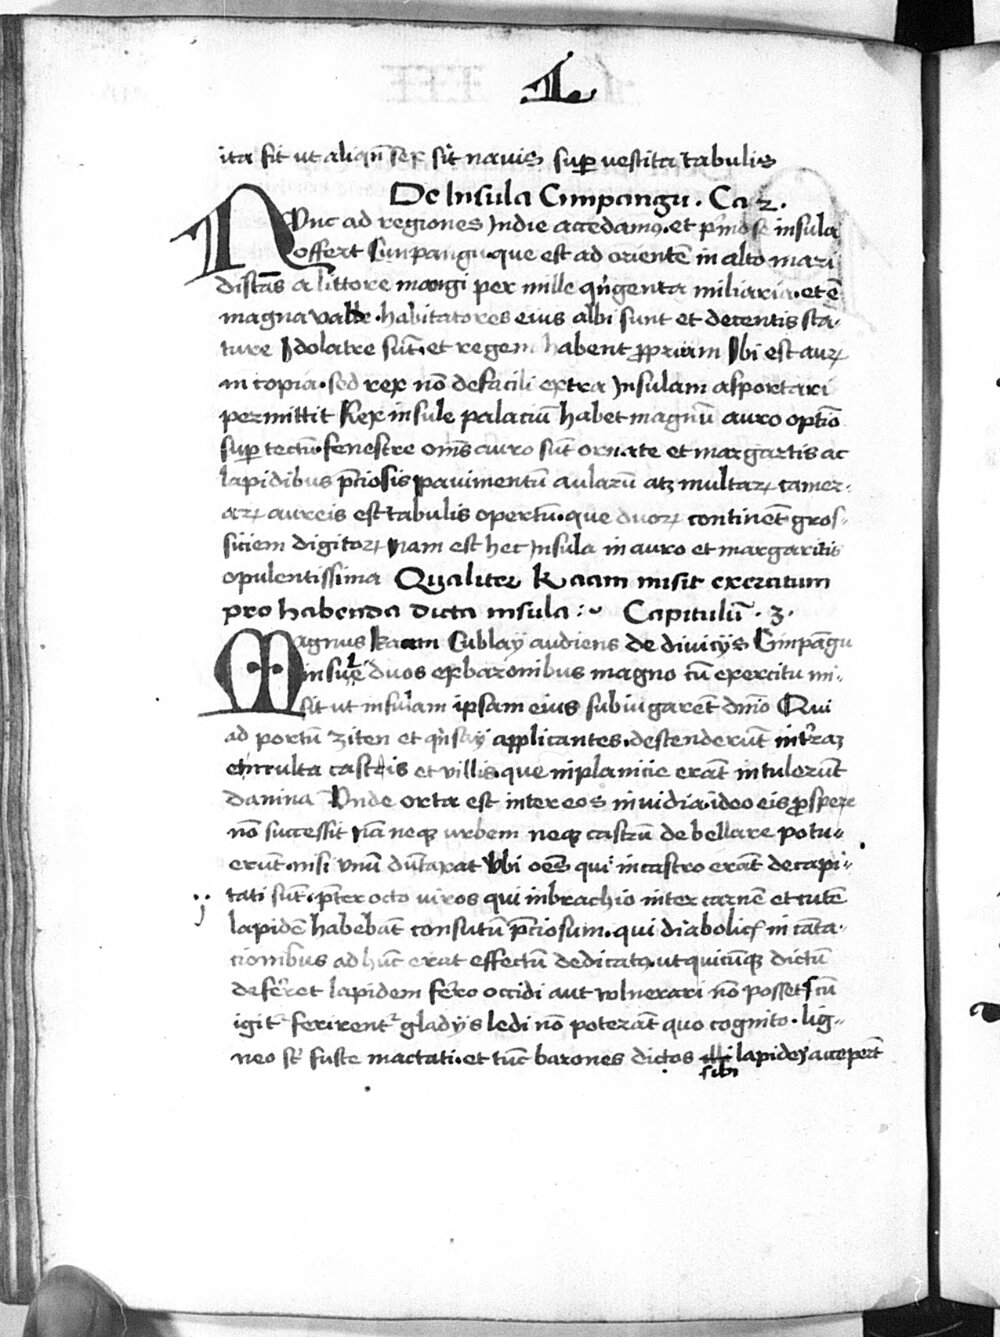 L
ita fit ut aliqn̄ sex sīt navis sup vestita tabulis
De Insula Cimpangu . Ca 2 .
Nunc ad regiones Indie accedamꝰ. et pͥmo se insula
offert Cimpangu. que est ad orientē in alto mari
distās a littore mangi per mille qͥngenta miliaria . et ē
magna valde . habitatores eius albi sunt et decentis sta-
ture Idolatre sūt. et regem habent ꝓprium Ibi est auꝝ
in copia . sed rex nō defacili extra Insulam asportari
permittit Rex insule palaciū habet magnū auro optīo
suꝑ tectū. fenestre om̄s auro sūt ornate et margartis ac
lapidibus p̄ciosis pavimentū aularū atꝫ multaꝝ camer-
aꝝ aureis est tabulis opertū. que duoꝝ continēt gros-
sitiem digitoꝝ Nam est hec Insula in auro et margaritis
opulentissima Qualiter Kaam misit exercitum
pro habenda dicta insula :~ Capitulū . 3 .
Magnus kaam Cublay audiens de divicijs Cimpāgu
insule duos ex baronibus magno cū exercitu mi-
sit ut insulam ipsam eius subiugarēt dn̄io Qui
ad portū Ziten et qͥnsay applicantes. descenderūt
et multa castris et villis. que in planicie erāt intulerūt
damna Unde orta est inter eos invidia. ideo eis ꝓspere
nō successit nā neqꝫ urbem neqꝫ castrū debellare potu-
erūt. nisi unū dūtaxat Ubi oēs qui in castro erāt decapi-
tati sūt. p̄ter octo viros qui in brachio inter carnē et cutē
lapidē habebāt consutū p̄ciosum. qui diabolicis in cāta-
cionibus ad hūc erat effectū dedicatꝰ. ut quicūqꝫ dictū
deferret lapidem ferro occidi aut vulnerari nō posset cū
igitͬ ferirentͬ gladijs ledi nō poterāt quo cognito . lig-
neo st̄ fuste mactati. et tūc barones dictos illi lapides acceperūt
sibi